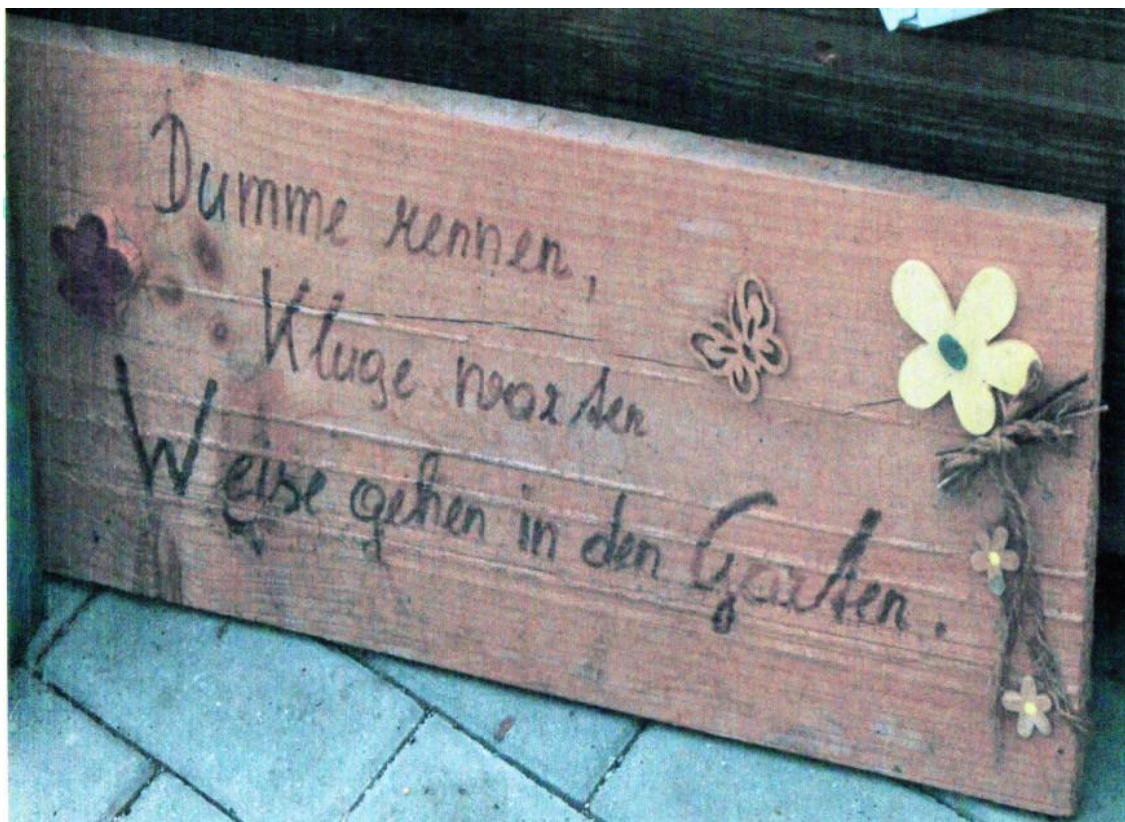 Dumme rennen,
Kluge warten
Weise gehen in den Garten.